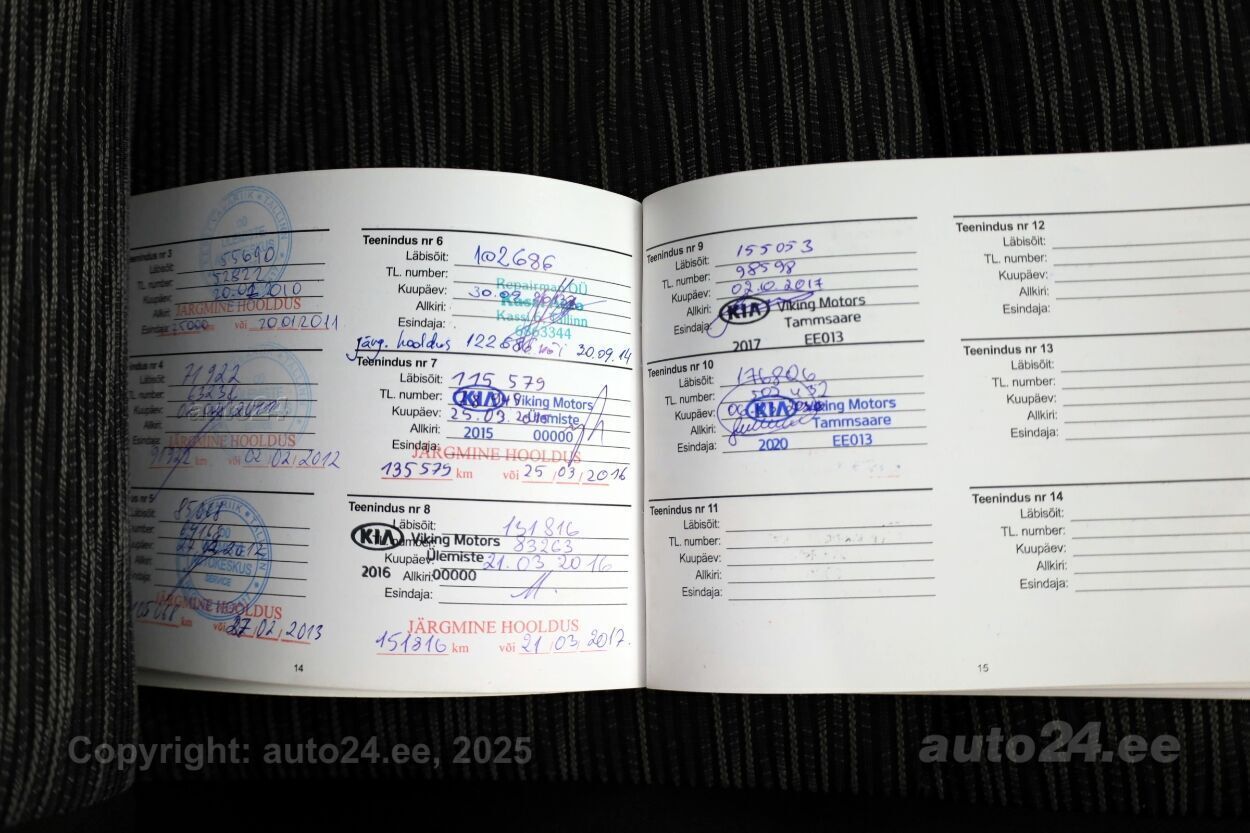 Teenindus nr 3
Läbisõit: 55690
TL. number: 52822
Kuupäev: 20.01.2010
Allkiri:
JÄRGMINE HOOLDUS
Esindaja:
või 20 01 2011
nr 4
Läbisõit: 71922
number: 63238
Kuupäev:
Allkiri:
JÄRGMINE HOOLDUS
Esindaja:
km või 02 02 2012
nr 5
Läbisõit:
number:
27.02.2012
AUTOKESKUS
SERVICE
JÄRGMINE HOOLDUS
km või 27 02 2013
14
Teenindus nr 6
Läbisõit: 102686
TL. number:
Repairman OÜ
Kuupäev: 30.09.
Allkiri:
Kassi Tallinn
Esindaja: 6863344
järg. hooldus 122686 või 30.09.14
Teenindus nr 7
Läbisõit: 115 579
TL. number:
KIA Viking Motors
Kuupäev: 25.03.
Ülemiste
Allkiri: 2015 00000
Esindaja:
JÄRGMINE HOOLDUS
135579 km või 25 03 2016
Teenindus nr 8
Läbisõit: 131816
TL. number: 83263
KIA Viking Motors
Ülemiste
Kuupäev: 21.03.2016
2016 Allkiri: 00000
Esindaja:
JÄRGMINE HOOLDUS
151816 km või 21 03 2017.
Teenindus nr 9
Läbisõit: 155053
TL. number: 98598
Kuupäev: 02.10.2017
Allkiri:
KIA Viking Motors
Tammsaare
Esindaja:
2017 EE013
Teenindus nr 10
Läbisõit: 176806
TL. number:
Kuupäev:
KIA Viking Motors
Allkiri: Tammsaare
Esindaja: 2020 EE013
Teenindus nr 11
Läbisõit:
TL. number:
Kuupäev:
Allkiri:
Esindaja:
Teenindus nr 12
Läbisõit:
TL. number:
Kuupäev:
Allkiri:
Esindaja:
Teenindus nr 13
Läbisõit:
TL. number:
Kuupäev:
Allkiri:
Esindaja:
Teenindus nr 14
Läbisõit:
TL. number:
Kuupäev:
Allkiri:
Esindaja:
15
Copyright: auto24.ee, 2025
auto24.ee